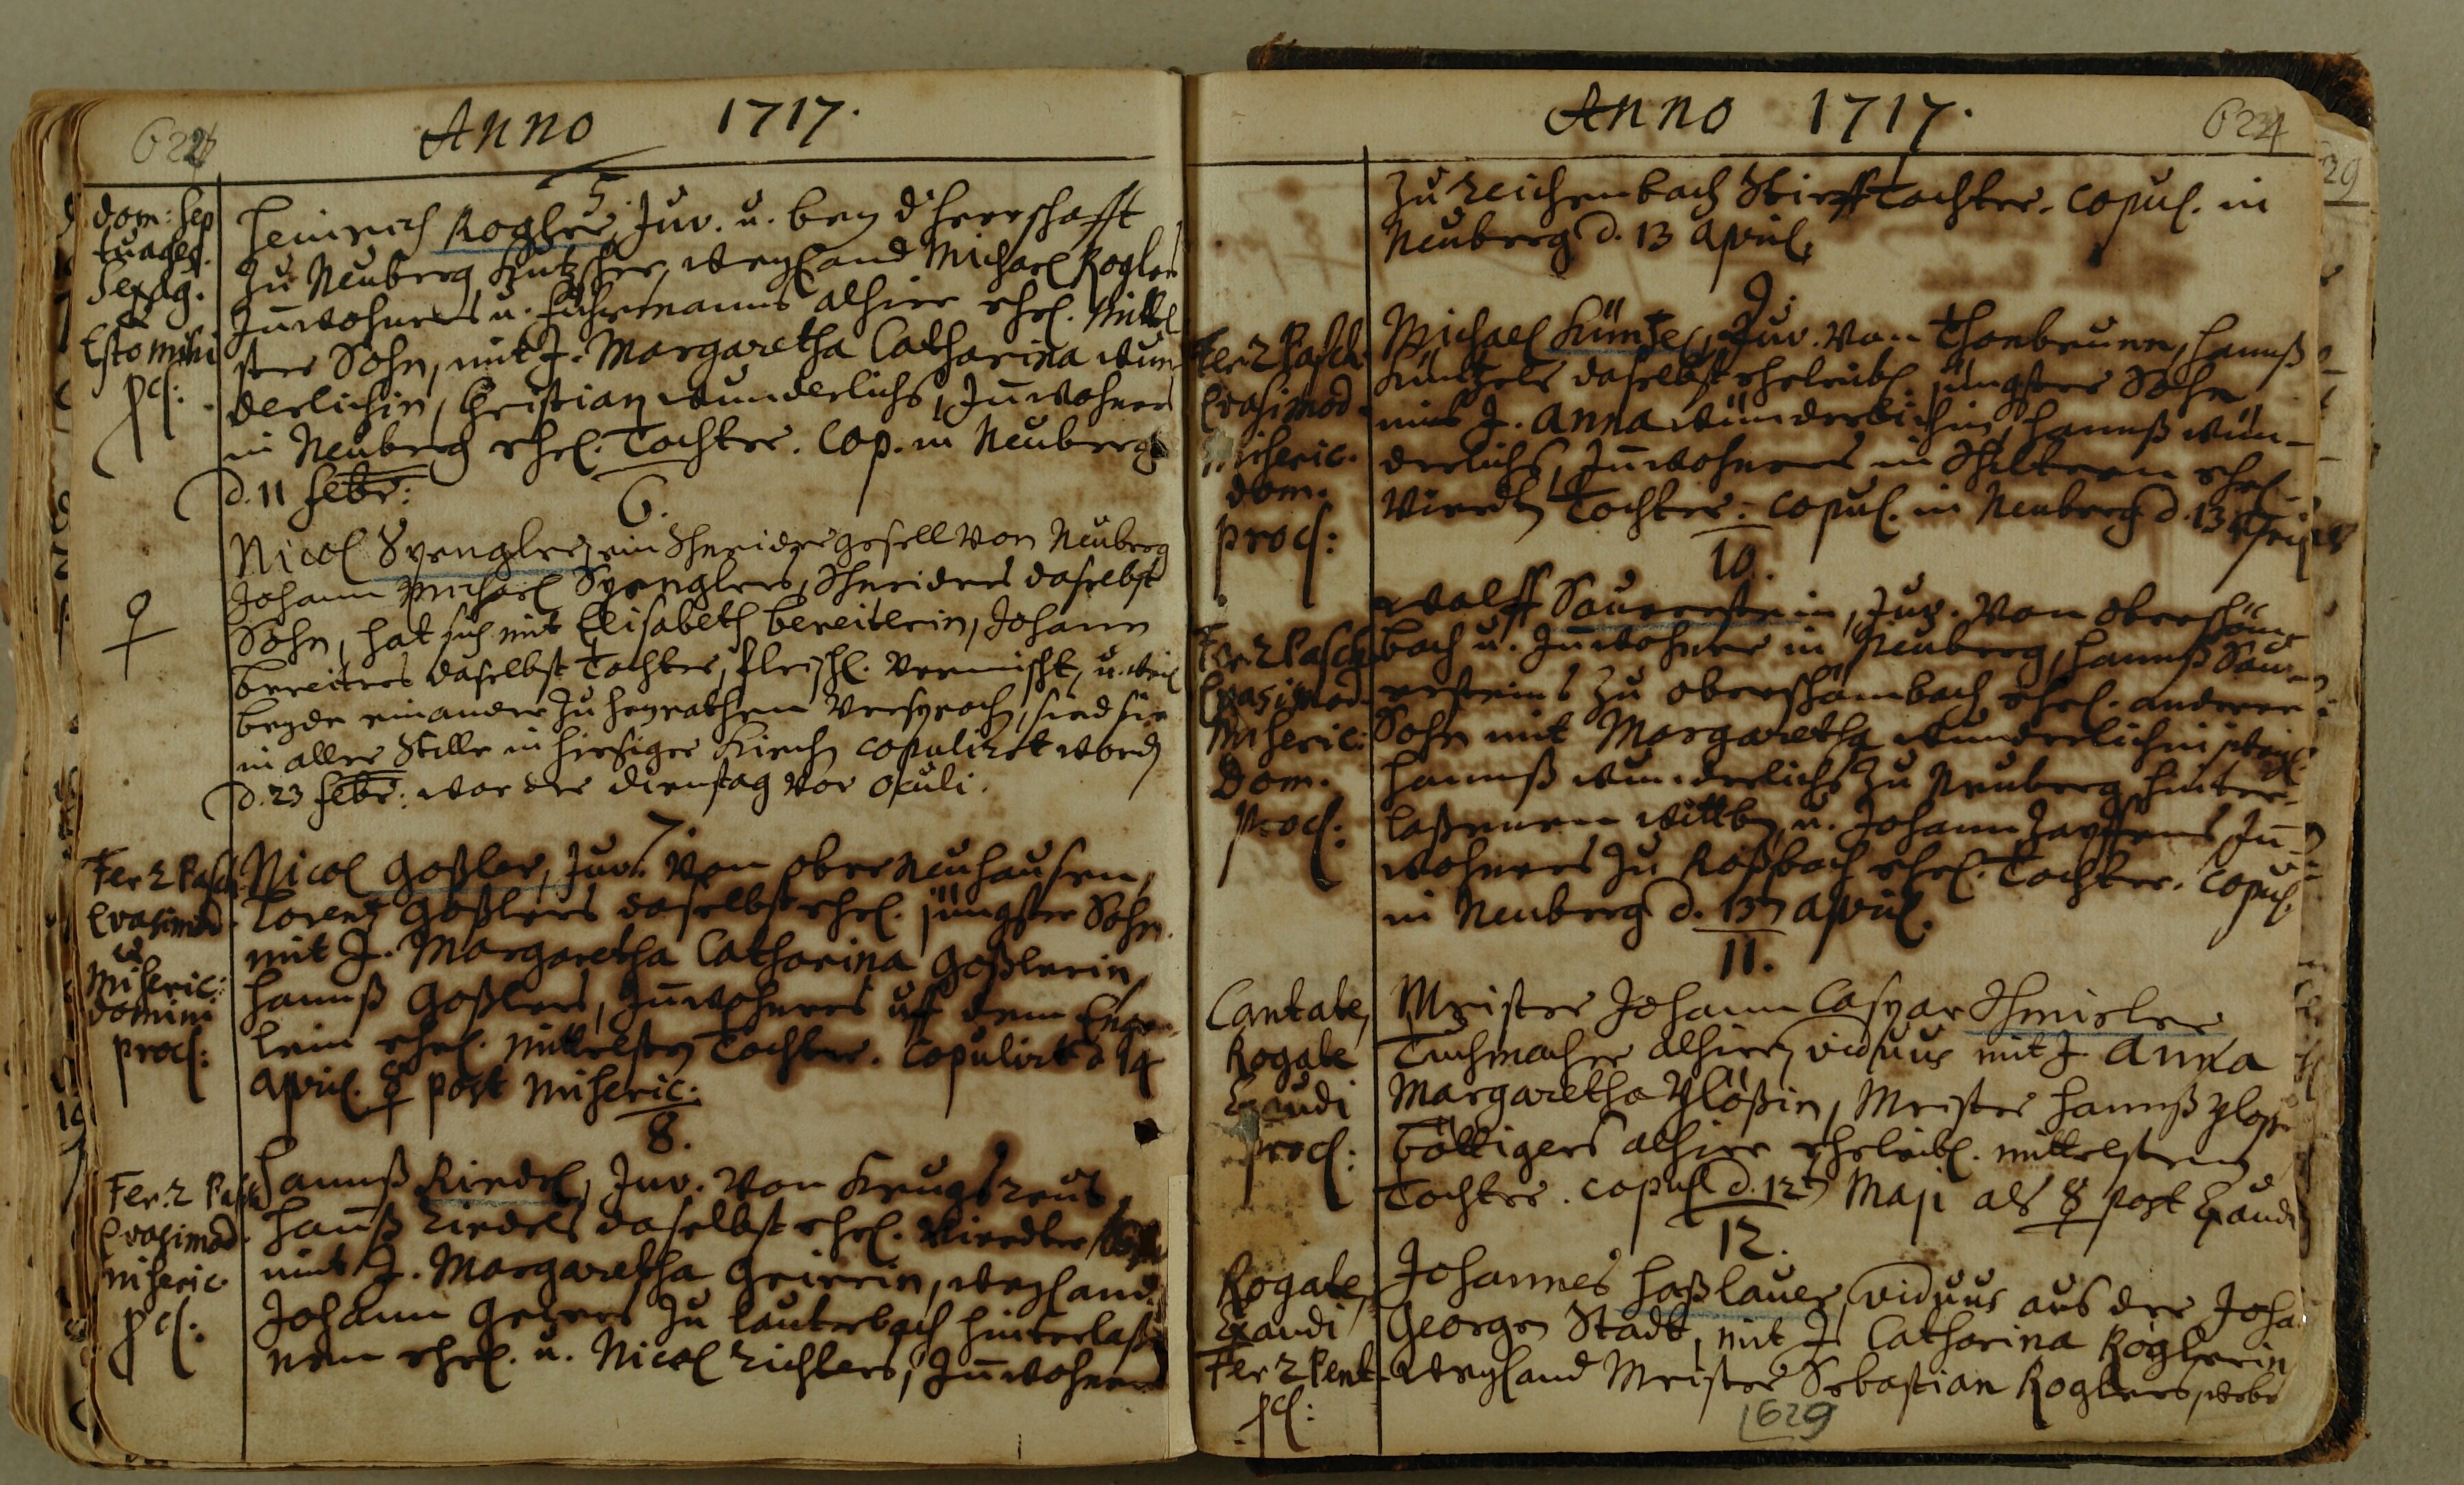 Anno 1717.
5.
Dom: Sep
tuages.
Sexag.
Esto mihi
pcl:
Heinrich Rogler, Juv. u. bey d' Herrschafft
zu Neuberg Kutscher, weyland Michael Roglers
Inwohners u. Fuhrmanns alhier ehel. Mittel
ster Sohn, mit J. Margaretha Catharina Wun
derlichin, Christian Wunderlichs, Inwohners
in Neuberg ehel. Tochter. Cop. in Neuberg
d. 11 Febr:
6.
Nicol Spengler, ein Schneidersgesell von Neuberg
Johann Michael Spenglers, Schneiders daselbst
Sohn, hat sich mit Elisabeth Bereiterin, Johann
Bereiters daselbst Tochter, fleischl. vermischt, u. weil
beyde einander zu heyrathen versproch, sind sie
in aller Stille in hiesiger Kirch copulirt word
d. 23 Febr: war der Dienstag vor Oculi.
7.
Fer 2 Pasch
Quasimod.
Miseric:
Domini
procl:
Nicol Goßler, Juv. von Ober Neuhausen,
Lorentz Goßlers daselbst ehel. jüngster Sohn
mit J. Margaretha Catharina Goßlerin,
Hannß Goßlers, Inwohners uff dem
lein ehel. mittelsten Tochter. Copulirt d 14
April. ☿ post Miseric:
8.
Fer. 2 Pasch
Quasimod.
Miseric.
pcl:
Hannß Riedel, Juv. von Krugsreut,
Hannß Riedels daselbst ehel. Vierdter
mit J. Margaretha Geierin, weyland
Johann Geyers zu Lauterbach hinterlaß
nen ehel. u. Nicol Richters, Inwohners
Anno 1717.
624
zu Reichenbach StieffTochter. Copul. in
Neuberg d. 13 April.
9.
Fer 2 Pasch
Quasimod.
Miseric.
Dom.
procl:
Michael Küntzel, Juv. von Thonbrunn, Hannß
Küntzels daselbst eheleibl. jüngster Sohn
mit J. Anna Wunderlichin, Hannß Wun-
derlichs, Inwohners in Schiltern ehel.
Vierdten Tochter. Copul. in Neuberg d. 13 Aprilis
10.
Fer 2 Pasch
Quasimod.
Miseric:
Dom.
procl:
Wolff Sauerstein, Juv. von Oberschön
bach u. Inwohner in Neuberg, Hannß Sau
ersteins zu Oberschömbach ehel. anderer
Sohn mit Margaretha Wunderlichin, weyl.
Hannß Wunderlichs zu Neuberg hinter-
laßenen Wittben, u. Johann In
wohners zu Roßbach ehel. Tochter. Copul.
in Neuberg d. 13 April.
11.
Cantate,
Rogate
Exaudi
procl:
Meister Johann Caspar
Tuchmacher alhier, viduus mit J. Anna
Margaretha Plößin, Meister Hannß Ploß
Böttigers alhier eheleibl. mittelsten
Tochter. copul. d. 12 Maji als ☿ post Exaudi
12.
Rogate,
Exaudi
Fer 2 Pent.
pcl:
Johannes Haßlauer, viduus aus der Joha
Georgen Stadt, mit J. Catharina Roglerin
weyland Meister Sebastian Roglers, Webe
629